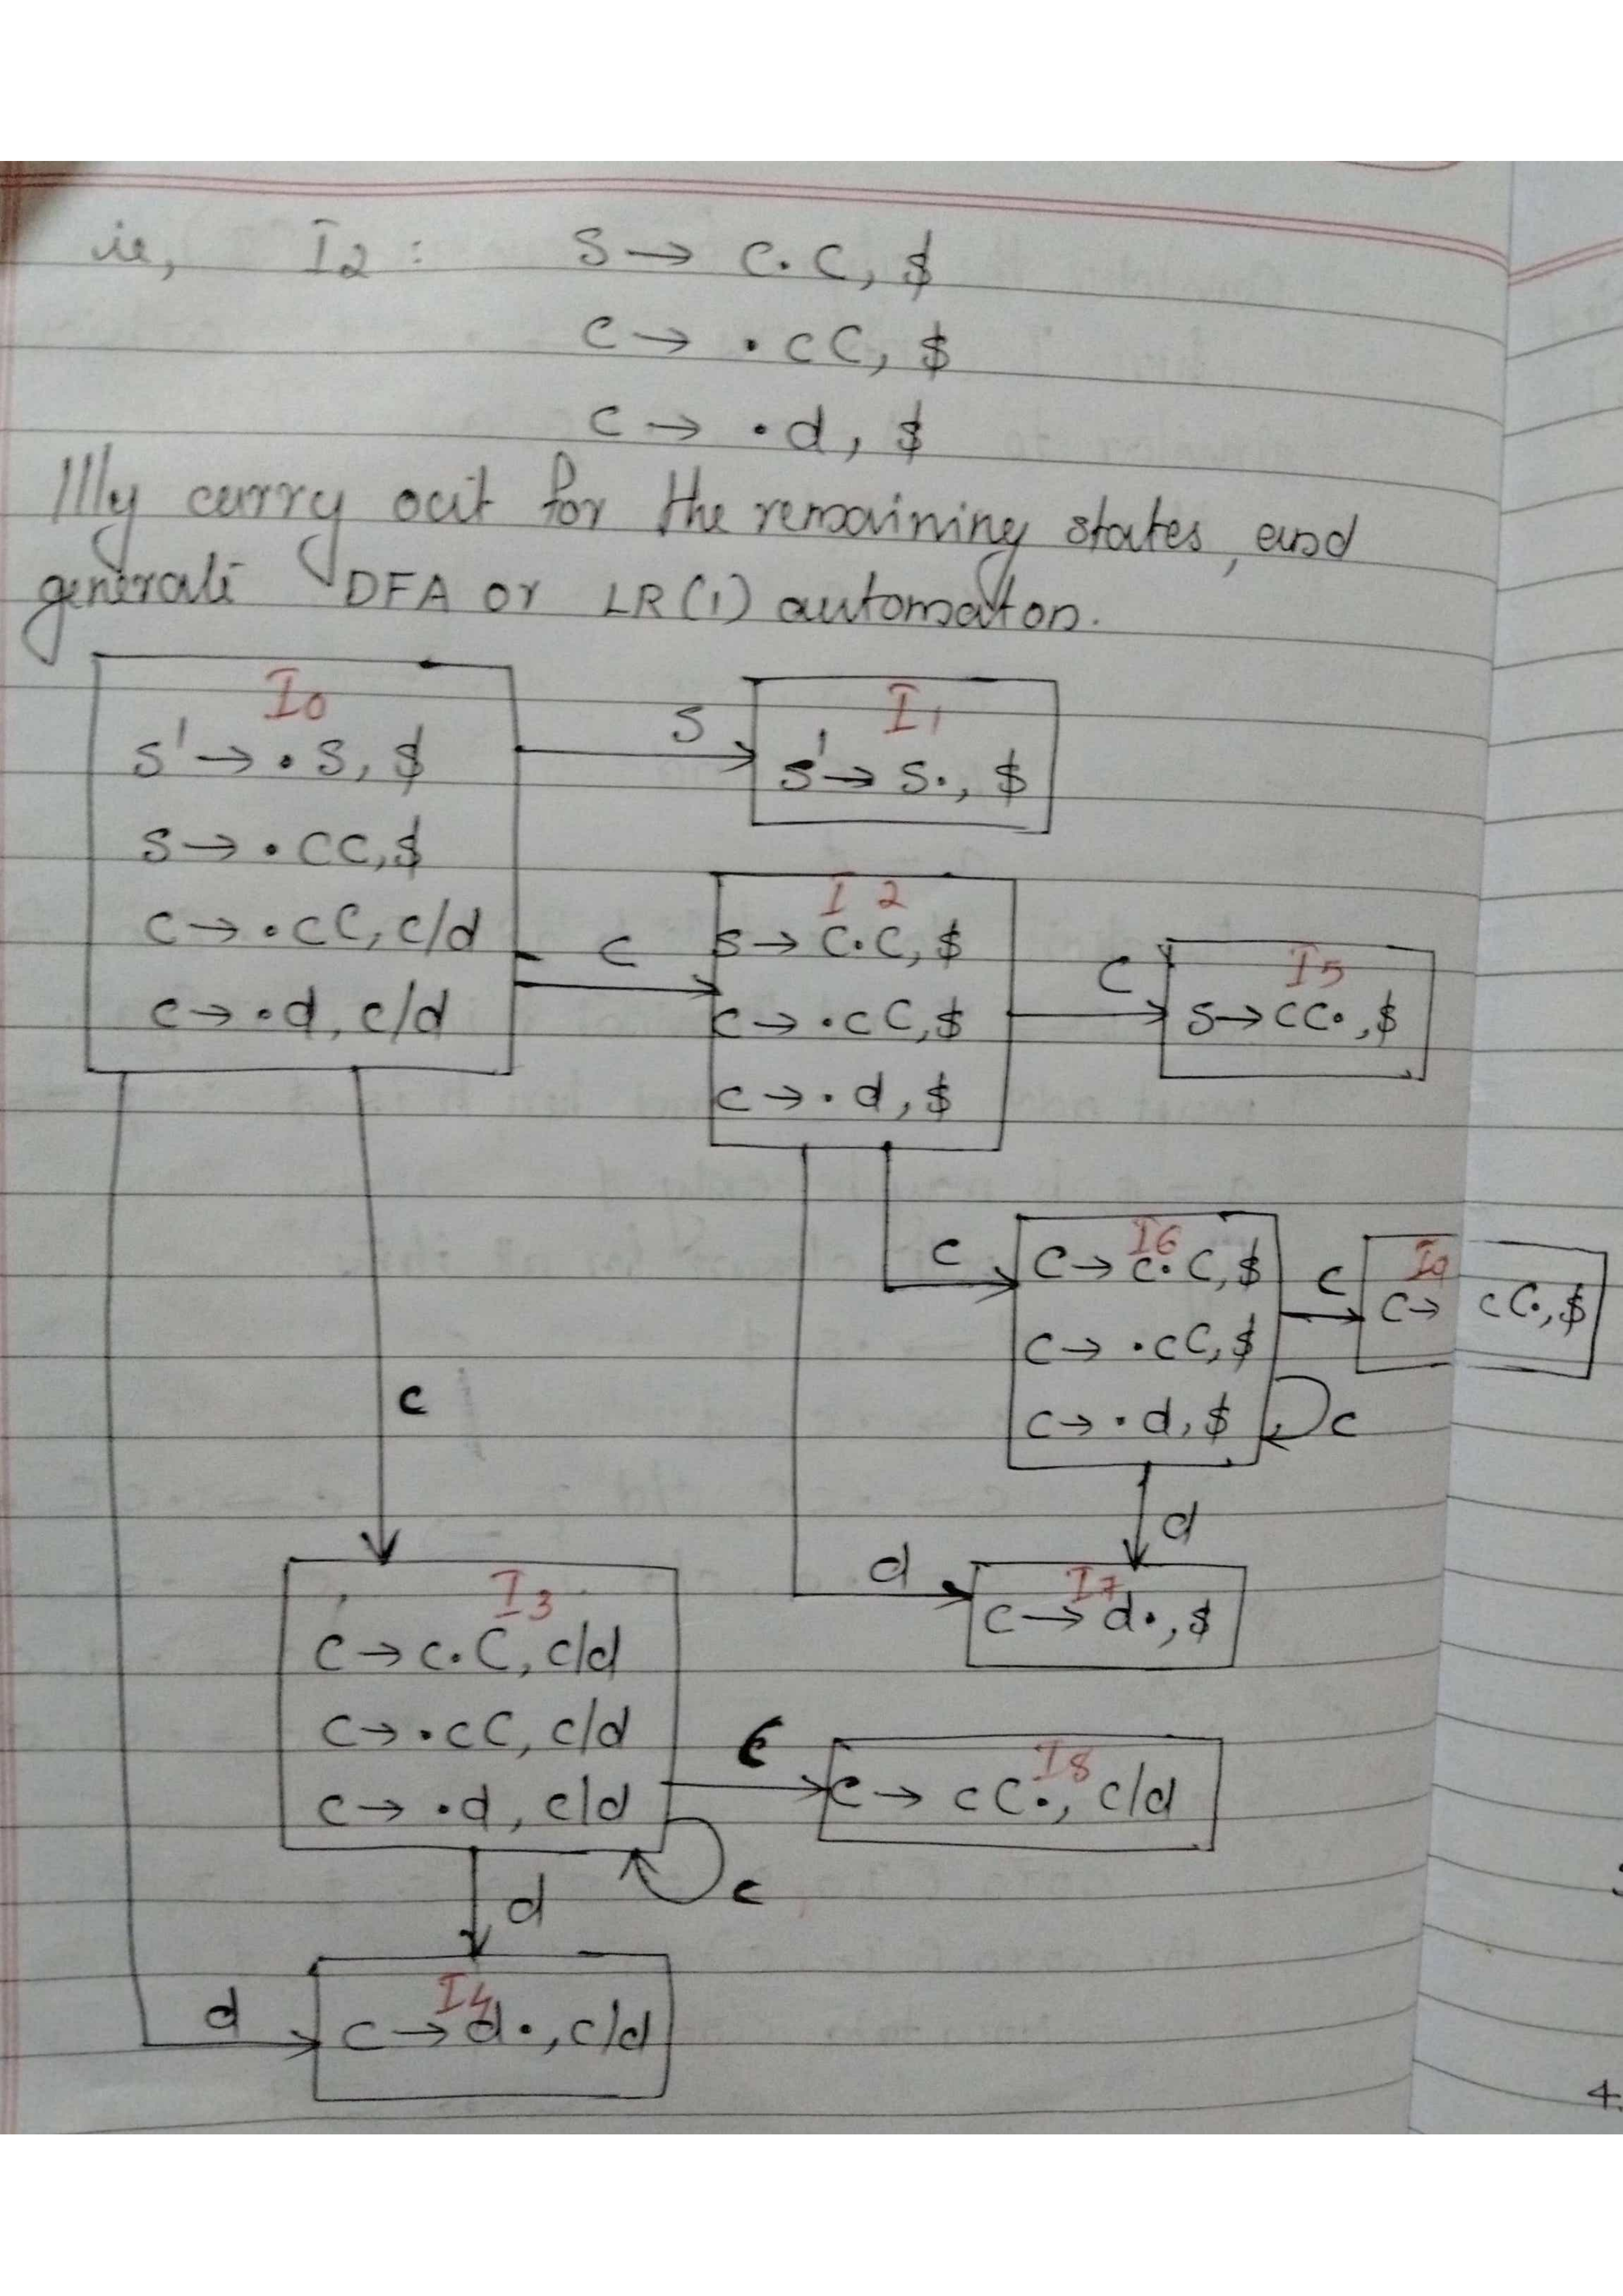 ie, I2: S → C.C, $
C → .cC, $
C → .d, $
Illly carry out for the remaining states, and
generate DFA or LR(1) automaton.
I0
S' → .S, $
S → .CC, $
C → .cC, c/d
C → .d, c/d
S
I1
S' → S., $
C
I2
S → C.C, $
C → .cC, $
C → .d, $
C
I5
S → CC., $
c
I6
C → c.C, $
C → .cC, $
C → .d, $
C
I9
C → cC., $
c
d
d
I7
C → d., $
c
I3
C → c.C, c/d
C → .cC, c/d
C → .d, c/d
C
I8
C → cC., c/d
c
d
d
I4
C → d., c/d
4.